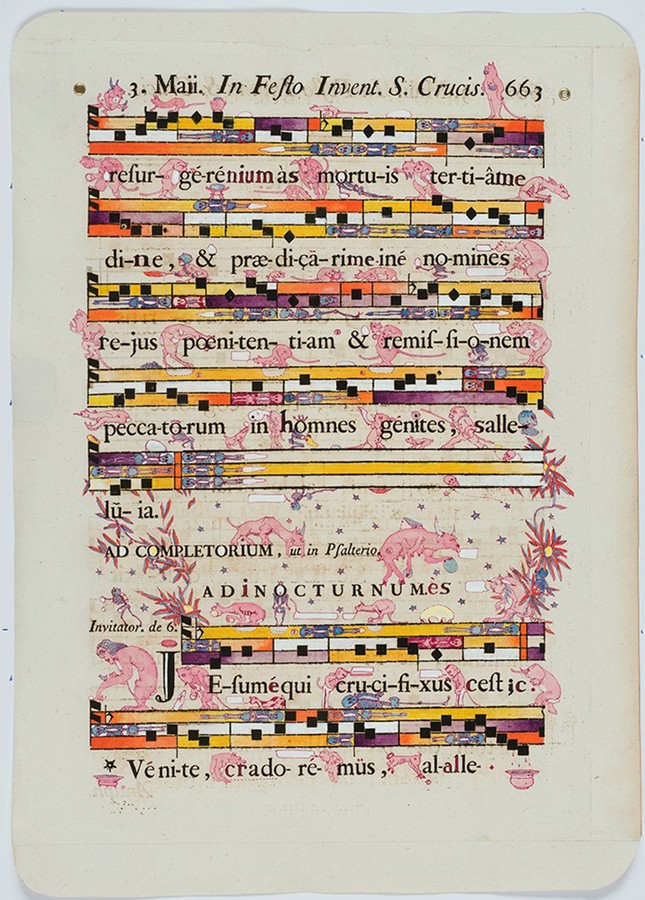 3. Maii. In Festo Invent. S. Crucis. 663
resur- gé-réniumàs mortu-is ter-ti-âme
di-ne, & præ-di-çã-rimeiné no-mines
re-jus pœni-ten- ti-am & remiſ-ſi-o-nem
pecca-to-rum in homnes génites, salle-
lũ- ia.
AD COMPLETORIUM, ut in Pſalterio,
ADiNOCTURNUMes
Invitator. de 6.
JE-ſuméqui cru-ci-fi-xus ceſt;c:
Véni-te, crado- ré- müs, al-alle-